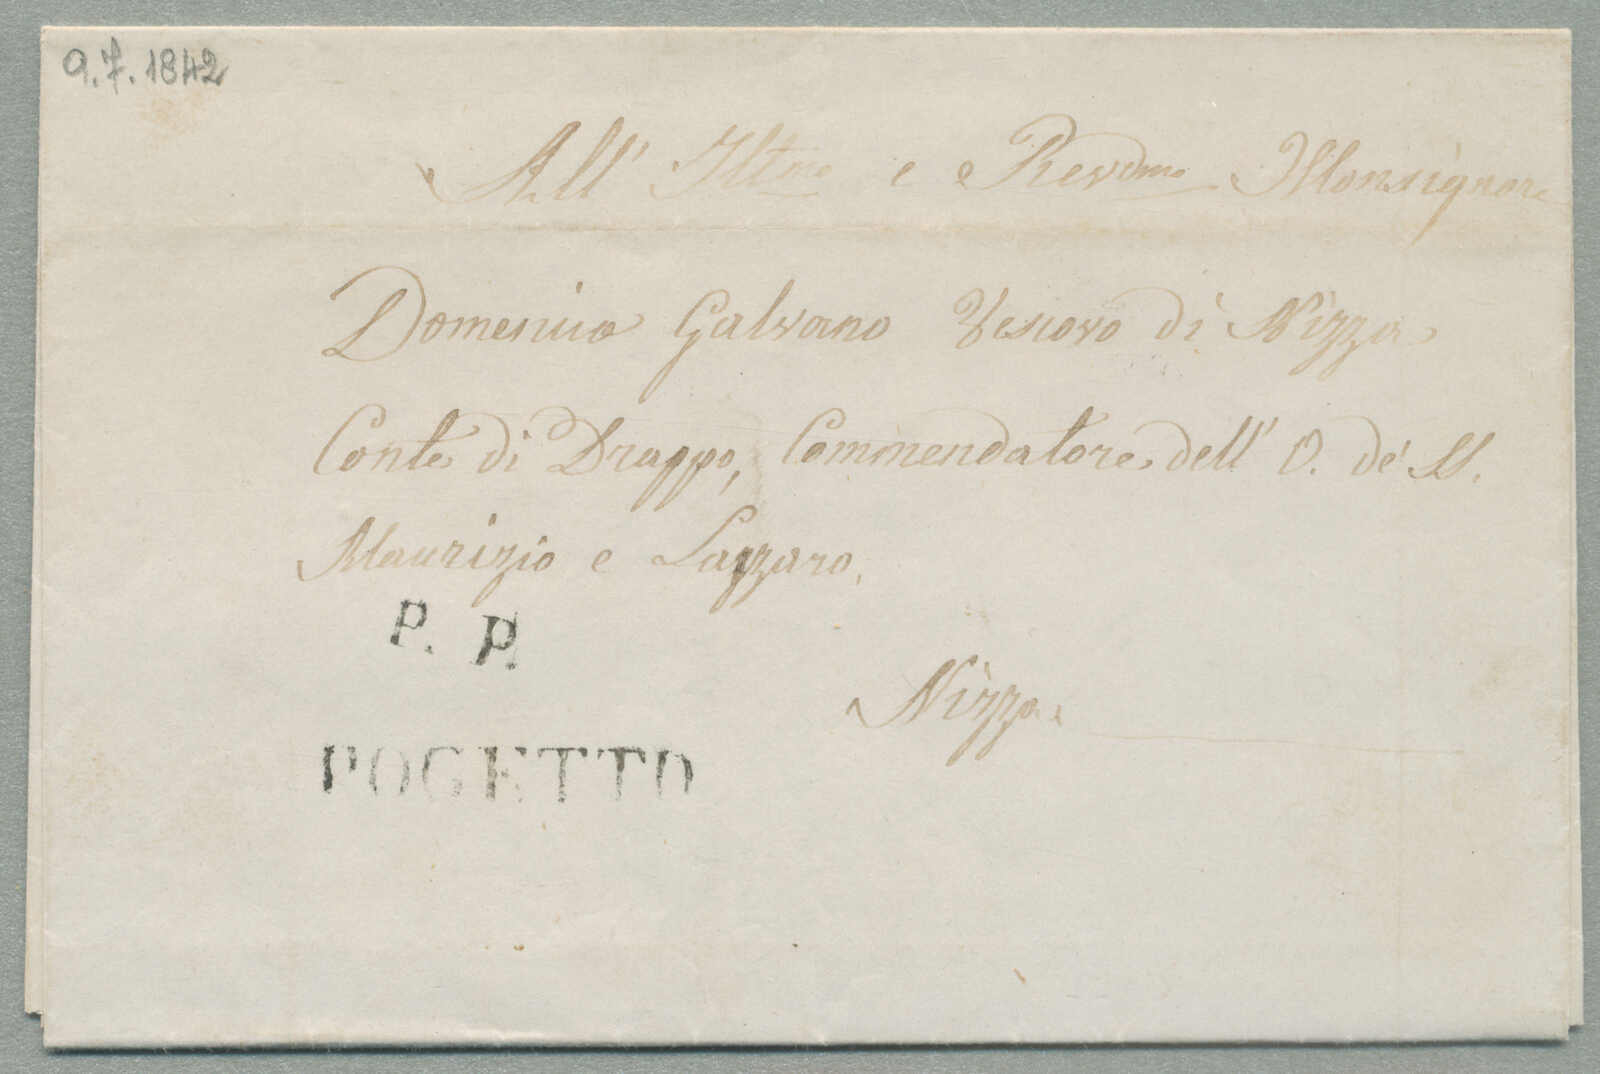 9.7.1842
All' Illmo e Revdmo Monsignore
Domenico Galvano Vescovo di Nizza
Conte di Drappo, Commendatore dell' O. de' SS.
Maurizio e Lazzaro.
P. P.
Nizza.
POGETTO